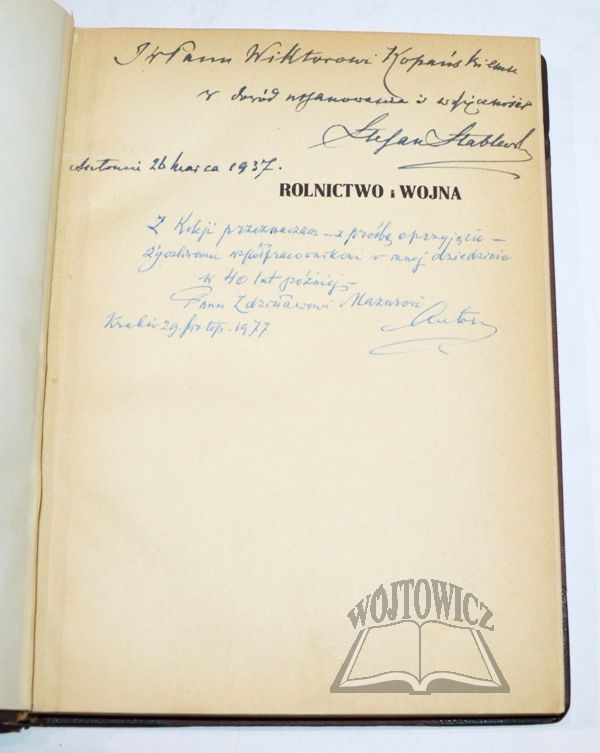 JWPanu Wiktorowi Kopańskiemu
w dowód uszanowania i wdzięczności
Stefan Stablewski
Antonin 26 marca 1937.
ROLNICTWO i WOJNA
Z Koleji przeznaczam – z prośbą o przyjęcie –
życzliwemu współpracownikowi w mnej dziedzinie
w 40 lat później –
Panu Zdzisławowi Mazurowi
Kraków 29 listop. 1977
Autor
WÓJTOWICZ